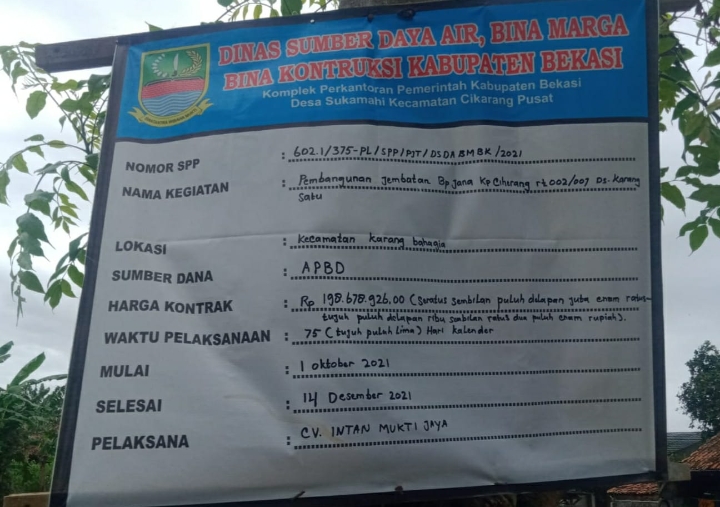 DINAS SUMBER DAYA AIR, BINA MARGA
BINA KONTRUKSI KABUPATEN BEKASI
Komplek Perkantoran Pemerintah Kabupaten Bekasi
Desa Sukamahi Kecamatan Cikarang Pusat
NOMOR SPP : 602.1/375-PL/SPP/PJT/DSDABMBK/2021
NAMA KEGIATAN : Pembangunan Jembatan Bp Jana Kp Cihirang rt 002/007 Ds. Karang
Satu
LOKASI : Kecamatan karang bahagia
SUMBER DANA : APBD
HARGA KONTRAK : Rp 198.678.926,00 (Seratus Sembilan puluh delapan juta enam ratus
tujuh puluh delapan ribu sembilan ratus dua puluh enam rupiah).
WAKTU PELAKSANAAN : 75 (tujuh puluh lima) Hari kalender
MULAI : 1 oktober 2021
SELESAI : 14 Desember 2021
PELAKSANA : CV. INTAN MUKTI JAYA